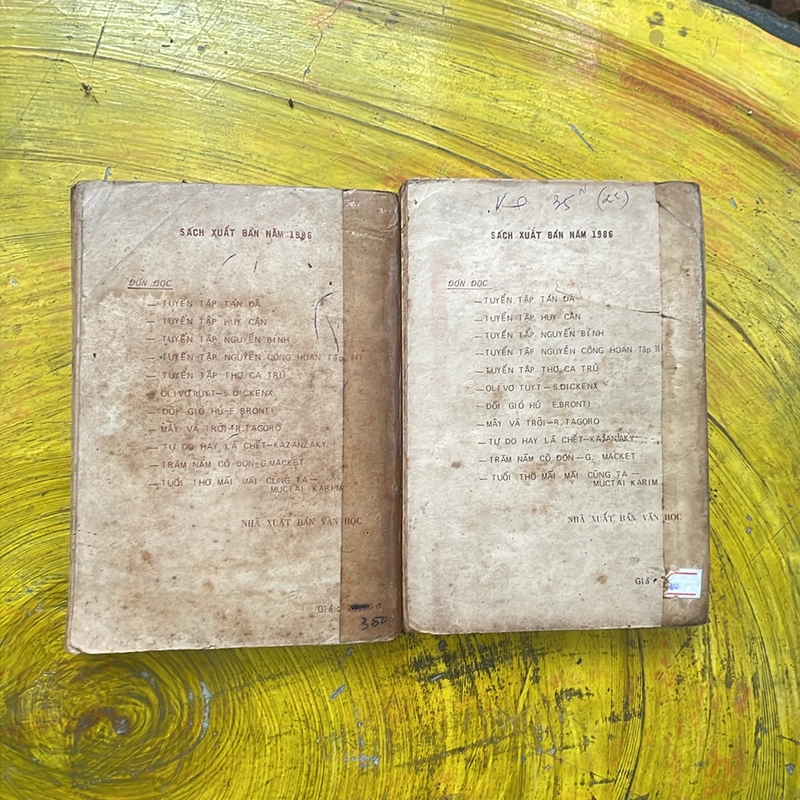 SÁCH XUẤT BẢN NĂM 1986
ĐÓN ĐỌC
— TUYỂN TẬP TẢN ĐÀ
— TUYỂN TẬP HUY CẬN
— TUYỂN TẬP NGUYỄN BÍNH
— TUYỂN TẬP NGUYỄN CÔNG HOAN Tập III
— TUYỂN TẬP THƠ CA TRÙ
— OLIVƠ TUYT — S.DICKENX
— ĐỒI GIÓ HÚ — E.BRONTI
— MÂY VÀ TRỜI — R.TAGORO
— TỰ DO HAY LÀ CHẾT — KAZANZAKY
— TRĂM NĂM CÔ ĐƠN — G.MACKET
— TUỔI THƠ MÃI MÃI CÙNG TA —
MUCTAI KARIM
NHÀ XUẤT BẢN VĂN HỌC
Giá :
350
35N (2c)
SÁCH XUẤT BẢN NĂM 1986
ĐÓN ĐỌC
— TUYỂN TẬP TẢN ĐÀ
— TUYỂN TẬP HUY CẬN
— TUYỂN TẬP NGUYỄN BÍNH
— TUYỂN TẬP NGUYỄN CÔNG HOAN Tập II
— TUYỂN TẬP THƠ CA TRÙ
— OLIVƠ TUYT — S.DICKENX
— ĐỒI GIÓ HÚ E.BRONTI
— MÂY VÀ TRỜI — R.TAGORO
— TỰ DO HAY LÀ CHẾT — KAZANZAKY
— TRĂM NĂM CÔ ĐƠN — G. MACKET
— TUỔI THƠ MÃI MÃI CÙNG TA —
MUCTAI KARIM
NHÀ XUẤT BẢN VĂN HỌC
Giá :